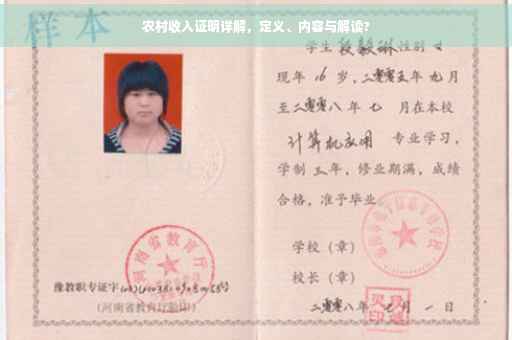 农村收入证明详解，定义、内容与解读?
样本
学生段毅琳性别女
现年16岁，二零零五年九月
至二零零八年七月在本校
计算机应用 专业学习，
学制三年，修业期满，成绩
合格，准予毕业。
学校（章）
校长（章）
二零零八年七月一日
河南省教育厅
豫教职专证字
（河南省教育厅验印）